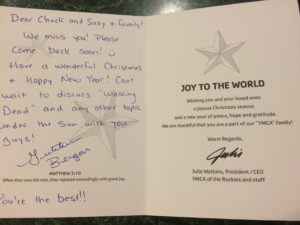 Dear Chuck and Suzy + family!
We miss you! Please
Come back soon!
Have a wonderful Christmas
+ Happy New Year! Can't
wait to discuss "Walking
Dead" and any other topic
under the sun with you
guys!
MATTHEW 2:10
When they saw the star, they rejoiced exceedingly with great joy.
You're the best!!
JOY TO THE WORLD
Wishing you and your loved ones
a joyous Christmas season
and a new year of peace, hope and gratitude.
We are thankful that you are a part of our "YMCA" family!
Warm Regards,
Julie
Julie Watkins, President / CEO
YMCA of the Rockies and staff